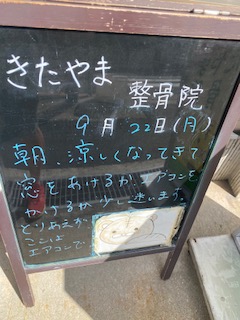 きたやま
整骨院
9月22日(月)
朝、涼しくなってきて
窓をあけるか、エアコンを
かけるか少し迷います。
とりあえず
ここは
エアコンで